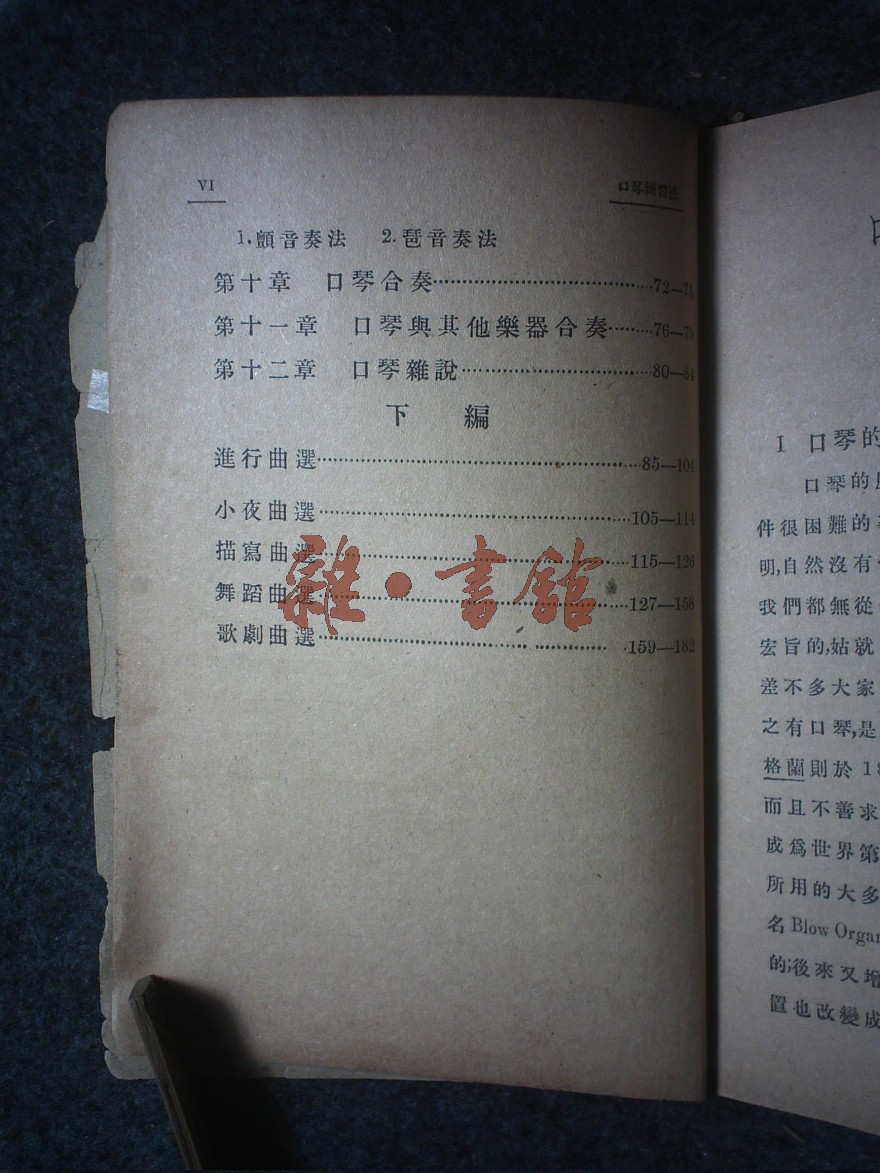 VI
口琴練習法
1.顫音奏法 2.琶音奏法
第十章 口琴合奏……72—75
第十一章 口琴與其他樂器合奏……76—79
第十二章 口琴雜說……80—84
下 編
進行曲選……85—104
小夜曲選……105—114
描寫曲選……115—126
舞蹈曲選……127—158
歌劇曲選……159—182
雜·書館
1 口琴的
口琴的
件很困難的
明,自然沒有
我們都無從
宏旨的,姑就
差不多大家
之有口琴,是
格蘭則於18
而且不善求
成爲世界第
所用的大多
名Blow Organ
的;後來又增
置也改變成